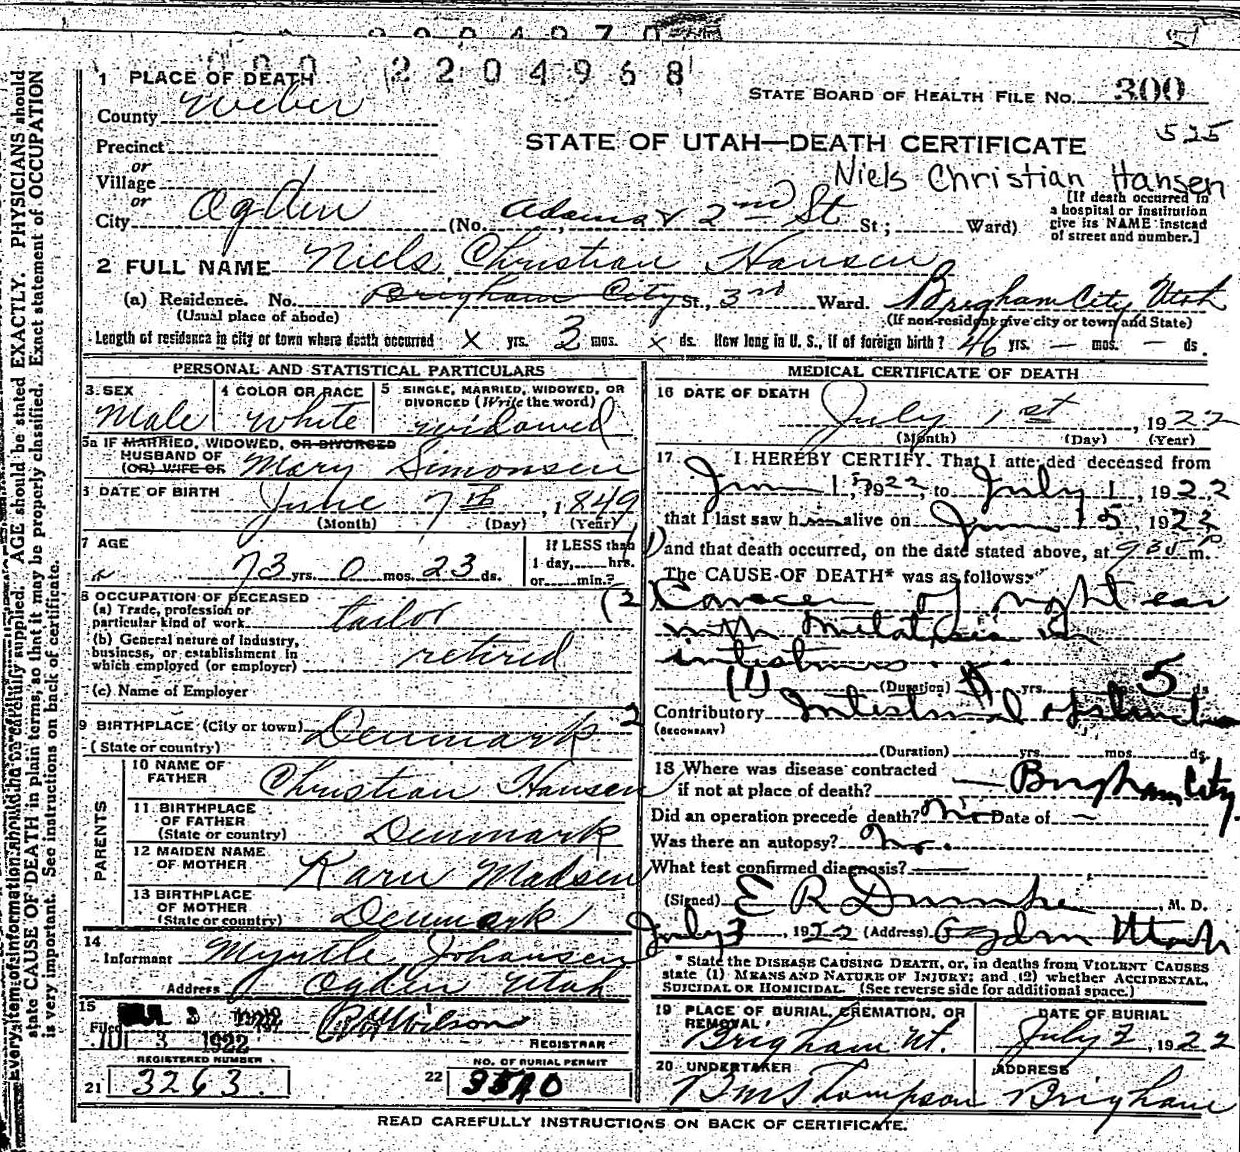 000 2204968
1 PLACE OF DEATH
County Weber
STATE BOARD OF HEALTH FILE No. 300
525
Precinct
or
Village
or
STATE OF UTAH—DEATH CERTIFICATE
Niels Christian Hansen
City Ogden (No. Adams & 2nd St St; Ward)
[If death occurred in
a hospital or institution
give its NAME instead
of street and number.]
2 FULL NAME Niels Christian Hansen
(a) Residence. No. Brigham City St., 3rd Ward. Brigham City, Utah
(Usual place of abode) (If non-resident give city or town and State)
Length of residence in city or town where death occurred x yrs. 3 mos. x ds. How long in U. S., if of foreign birth? 46 yrs. — mos. — ds.
PERSONAL AND STATISTICAL PARTICULARS
3 SEX
Male
4 COLOR OR RACE
White
5 SINGLE, MARRIED, WIDOWED, OR
DIVORCED (Write the word)
widowed
5a IF MARRIED, WIDOWED, OR DIVORCED
HUSBAND OF
(OR) WIFE OF Mary Simonsen
6 DATE OF BIRTH June 7th, 1849
(Month) (Day) (Year)
7 AGE
73 yrs. 0 mos. 23 ds.
If LESS than
1 day, hrs.
or min.?
8 OCCUPATION OF DECEASED
(a) Trade, profession or
particular kind of work tailor
(b) General nature of Industry,
business, or establishment in
which employed (or employer) retired
(c) Name of Employer
9 BIRTHPLACE (City or town)
(State or country) Denmark
PARENTS
10 NAME OF
FATHER Christian Hansen
11 BIRTHPLACE
OF FATHER
(State or country) Denmark
12 MAIDEN NAME
OF MOTHER Karn Madsen
13 BIRTHPLACE
OF MOTHER
(State or country) Denmark
14
Informant Myrtle Johansen
Address Ogden Utah
15
Filed JUL 3 1922 Wilson
REGISTRAR
REGISTERED NUMBER
21 3263
NO. OF BURIAL PERMIT
22 3540
MEDICAL CERTIFICATE OF DEATH
16 DATE OF DEATH
July 1st, 1922
(Month) (Day) (Year)
17 I HEREBY CERTIFY. That I attended deceased from
June 15, 1922, to July 1, 1922
that I last saw him alive on June 15, 1922
and that death occurred, on the date stated above, at 930 P m.
The CAUSE OF DEATH* was as follows:
Cancer of right ear
with metatasis in
intestines
(Duration) yrs. mos. 5 ds
Contributory Intestinal obstruction
(SECONDARY)
(Duration) yrs. mos. ds.
18 Where was disease contracted
if not at place of death? Brigham City
Did an operation precede death? No Date of —
Was there an autopsy? No.
What test confirmed diagnosis?
(Signed) E R Dumke, M. D.
July 3, 1922 (Address) Ogden Utah
* State the DISEASE CAUSING DEATH, or, in deaths from VIOLENT CAUSES
state (1) MEANS AND NATURE OF INJURY; and (2) whether ACCIDENTAL,
SUICIDAL OR HOMICIDAL. (See reverse side for additional space.)
19 PLACE OF BURIAL, CREMATION, OR
REMOVAL
Brigham Ut.
DATE OF BURIAL
July 2, 1922
20 UNDERTAKER
Thompson
ADDRESS
Brigham
READ CAREFULLY INSTRUCTIONS ON BACK OF CERTIFICATE.
Every item of information should be carefully supplied. AGE should be stated EXACTLY. PHYSICIANS should
state CAUSE OF DEATH in plain terms, so that it may be properly classified. Exact statement of OCCUPATION
is very important. See instructions on back of certificate.